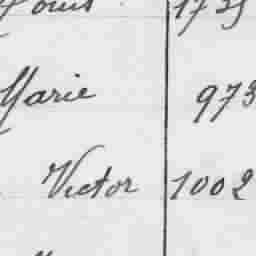 Louis 1725
Marie 973
Victor 1002